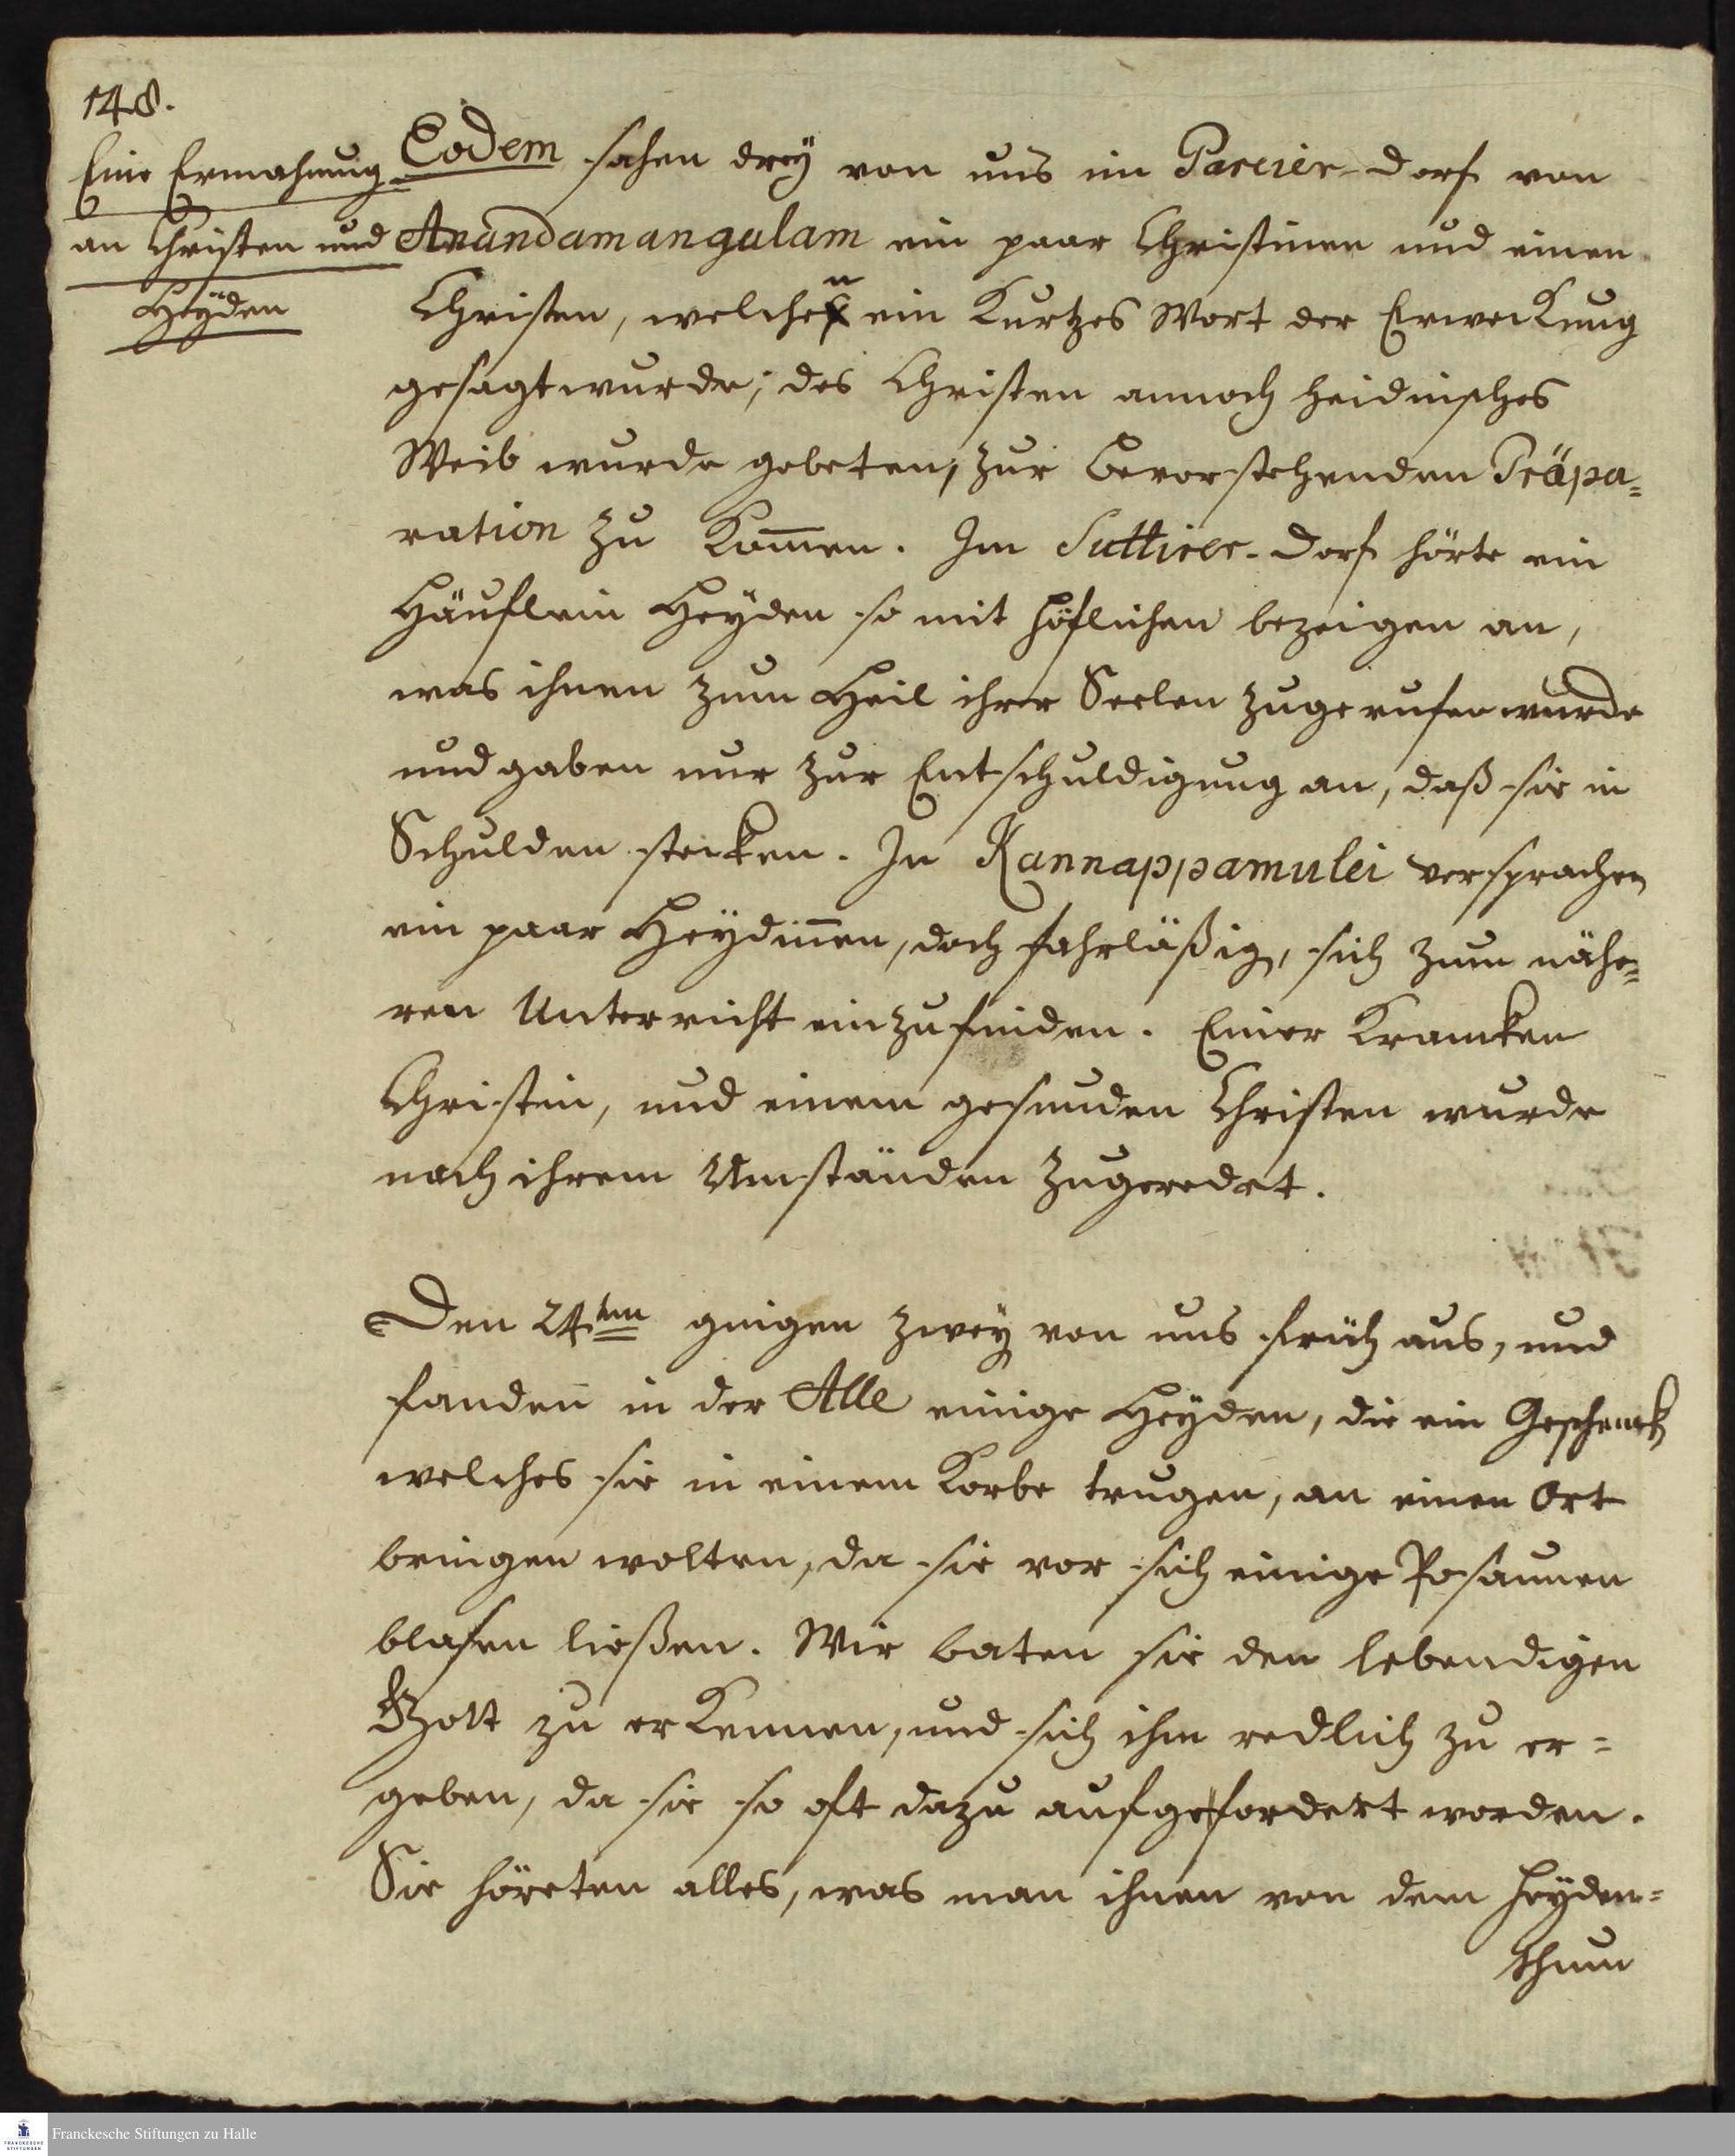 148.
Eine Ermahnung
an Christen und
Heyden
Eodem sahen drey von uns im Pareier-Dorf von
Anandamangulam ein paar Christinen und einen
Christen, welchen ein Kurtzes Wort der Erweckung
gesagt wurde; des Christen annoch heidnisches
Weib wurde gebeten, zur bevorstehenden Präpa=
ration zu Kom̄en. Im Suttirer-Dorf hörte ein
Häuflein Heyden so mit höflichen bezeigen an,
was ihnen zum Heil ihrer Seelen zugerufen wurde
und gaben nur zur Entschuldigung an, daß sie in
Schulden stecken. In Kannappamulei versprachen
ein paar Heydin̄en, doch fahrläßig, sich zum nähe=
ren Unterricht einzufinden. Einer Krancken
Christin, und einem gesunden Christen wurde
nach ihrem Umständen zugeredet.
Den 24ten gingen zwey von uns früh aus, und
fanden in der Alle einige Heyden, die ein Geschenck
welches sie in einem Korbe trugen, an einen Ort
bringen wolten, da sie vor sich einige Posaunen
blasen ließen. Wir baten sie den lebendigen
Gott zu erkennen, und sich ihm redlich zu er=
geben, da sie so oft dazu aufgefordert worden.
Sie höreten alles, was man ihnen von dem Heyden=
thum
Franckesche Stiftungen zu Halle